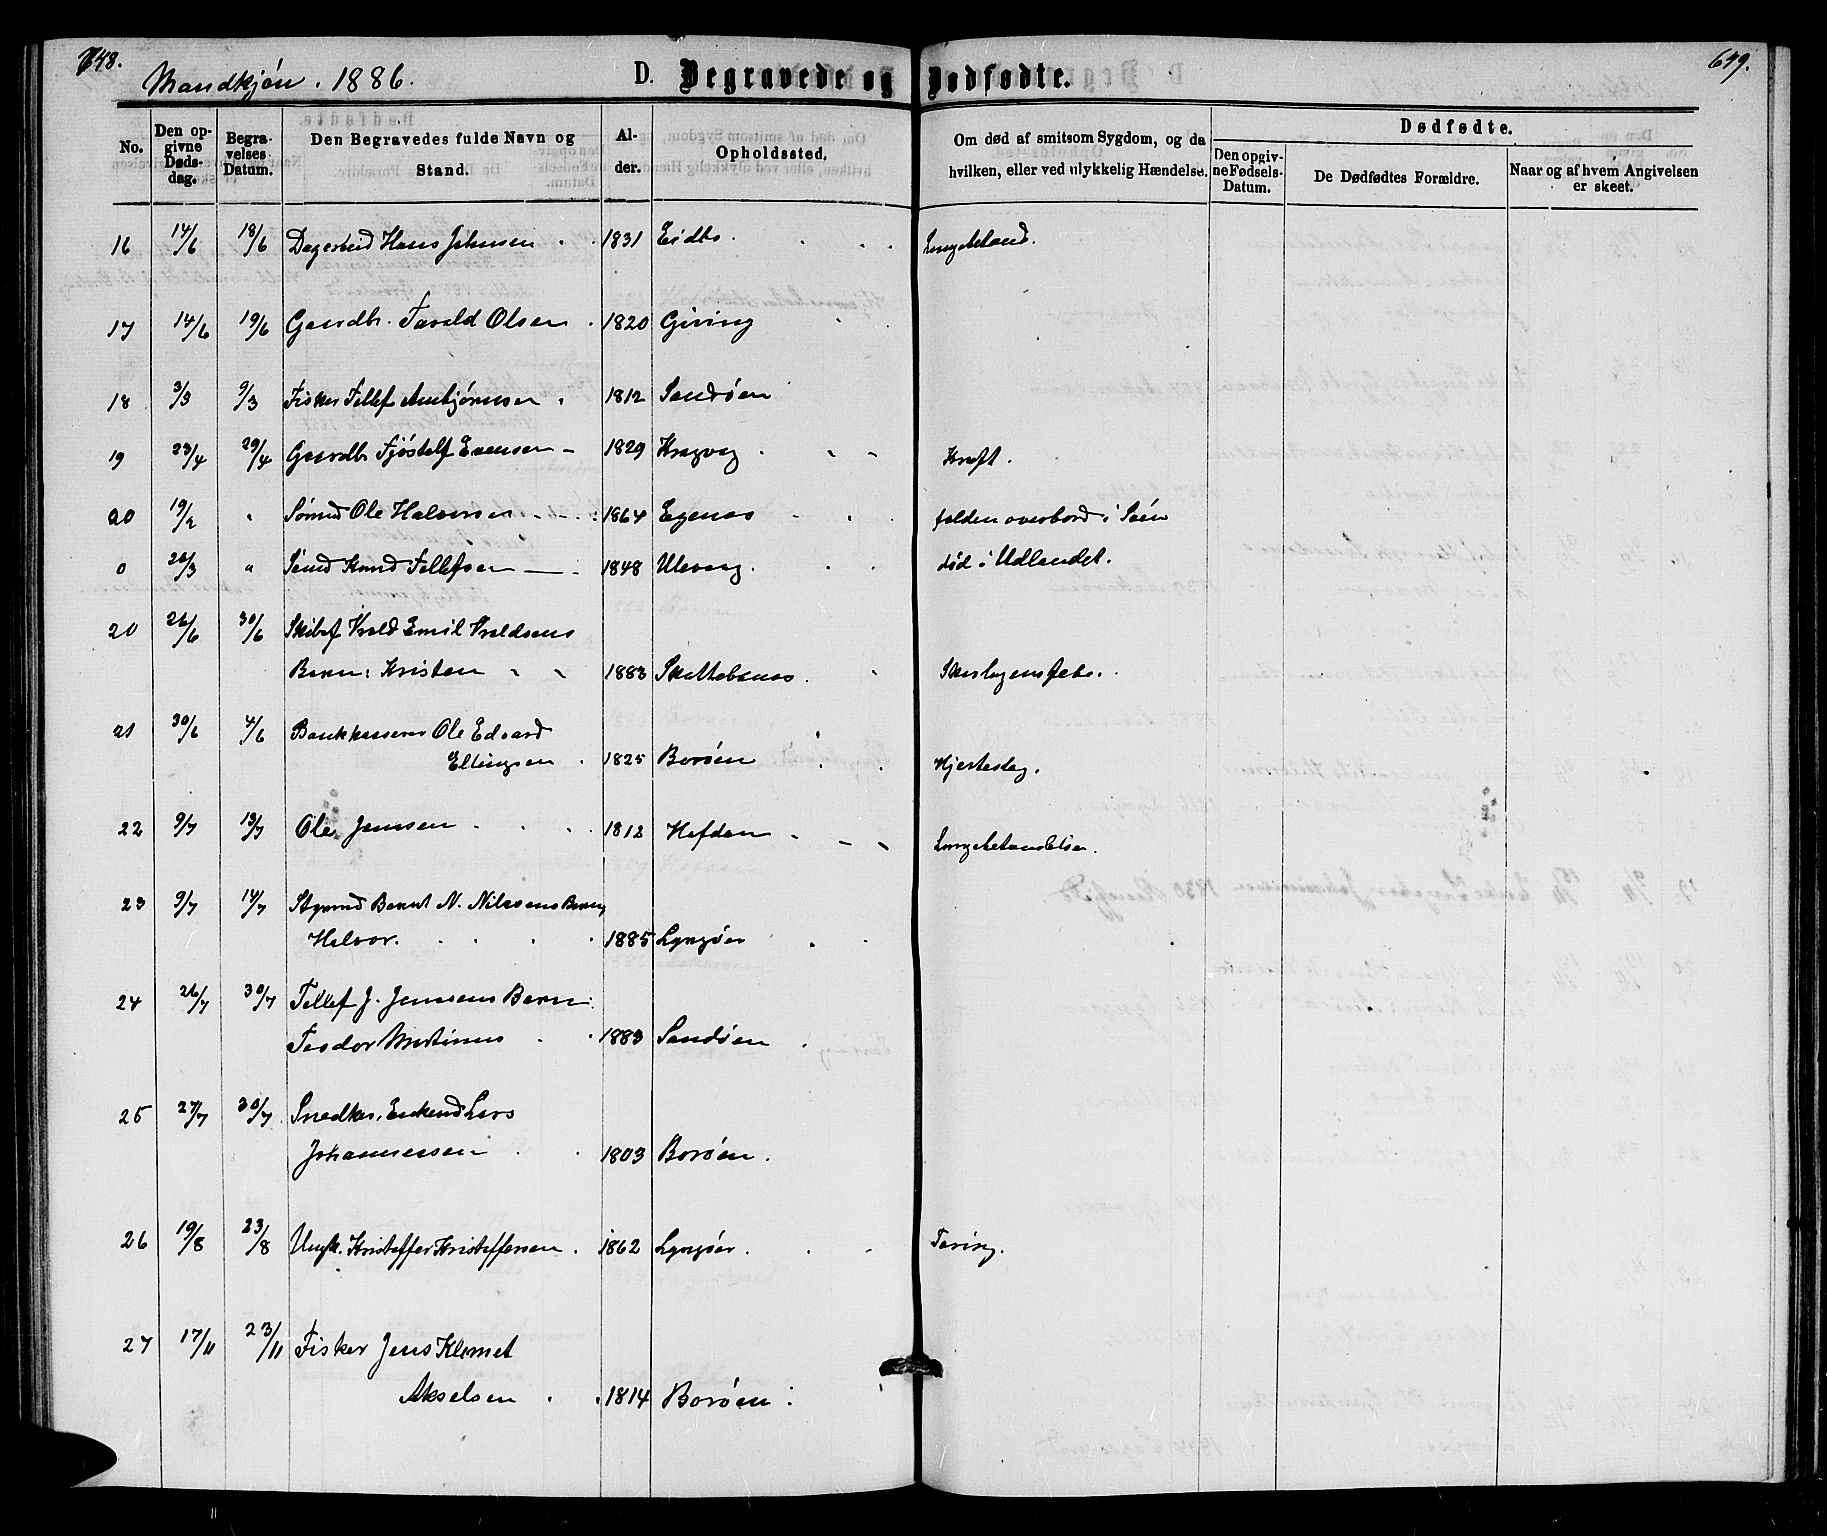 648.
Mandkjön. 1886.
D. Begravede og Dødfødte.
649.
No.
Den opgivne Dødsdag.
Begravelses Datum.
Den Begravedes fulde Navn og Stand.
Alder.
Opholdssted.
Om død af smitsom Sygdom, og da hvilken, eller ved ulykkelig Hændelse.
Dødfødte.
Den opgivne Fødsels-Datum.
De Dødfødtes Forældre.
Naar og af hvem Angivelsen er skeet.
16 14/6 18/6 Hans Johnsen 1831 Eidbo.
17 14/6 19/6 Gaardbr. Tarald Olsen 1820 Giving
18 3/3 9/3 Fisker Tellef Anbjørnsen 1812 Sandøen
19 23/4 29/4 Gaardbr Fjøstelf Evensen 1829 Kragvag. Kræft.
20 19/2 " Sømnd Ole Halvorsen 1864 Egenæs falden overbord i Søen
0 26/3 " Sømnd Knud Tellefsen 1848 Ulevag. død i Udlandet.
20 26/6 30/6 Skibsf Vrald Emil Vraldsens
Barn: Kristen 1883 Skottebanæs. Skarlagensfeber.
21 30/6 4/6 Bankkasserer Ole Edvard
Ellingsen 1825 Borøen Hjerteslag.
22 9/7 13/7 Ole Jenssen 1812 Hafdan Lungebetændelse.
23 9/7 14/7 Styrmd Bernt N. Nilssens Barn,
Halvor. 1885 Lyngøer
24 26/7 30/7 Tellef J. Jenssens Barn:
Teodor Martinus 1883 Sandøen
25 27/7 30/7 Snedker, Enkemd Lars
Johannessen 1803 Borøen.
26 19/8 23/8 Ungk. Kristoffer Kristoffersen 1862 Lyngøer. Tæring.
27 17/11 23/11 Fisker Jens Klemet
Akselsen 1814 Borøen